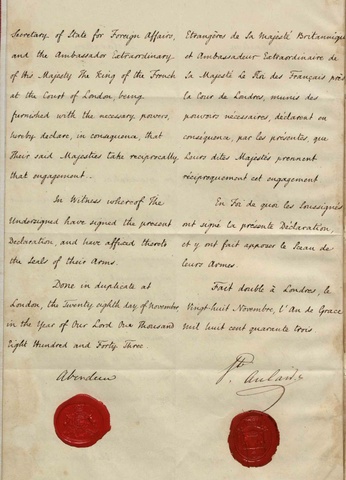 Secretary of State for Foreign Affairs,
and the Ambassador Extraordinary
of His Majesty The King of the French
at the Court of London, being
furnished with the necessary powers,
hereby declare, in consequence, that
Their said Majesties take reciprocally
that engagement.
In Witness whereof The
Undersigned have signed the present
Declaration, and have affixed thereto
the Seals of their Arms.
Done in duplicate at
London, the Twenty eighth day of November,
in the Year of Our Lord One Thousand
Eight Hundred and Forty Three
Aberdeen
Etrangères de Sa Majesté Britannique
et Ambassadeur Extraordinaire de
Sa Majesté Le Roi des Français près
la Cour de Londres, munis des
pouvoirs nécessaires, déclarent en
conséquence, par les présentes, que
Leurs dites Majestés prennent
réciproquement cet engagement
En Foi de quoi les Soussignés
ont signé la présente Déclaration,
et y ont fait apposer le Sceau de
leurs Armes
Fait double à Londres, le
Vingt huit Novembre, l'An de Grace
mil huit cent quarante trois